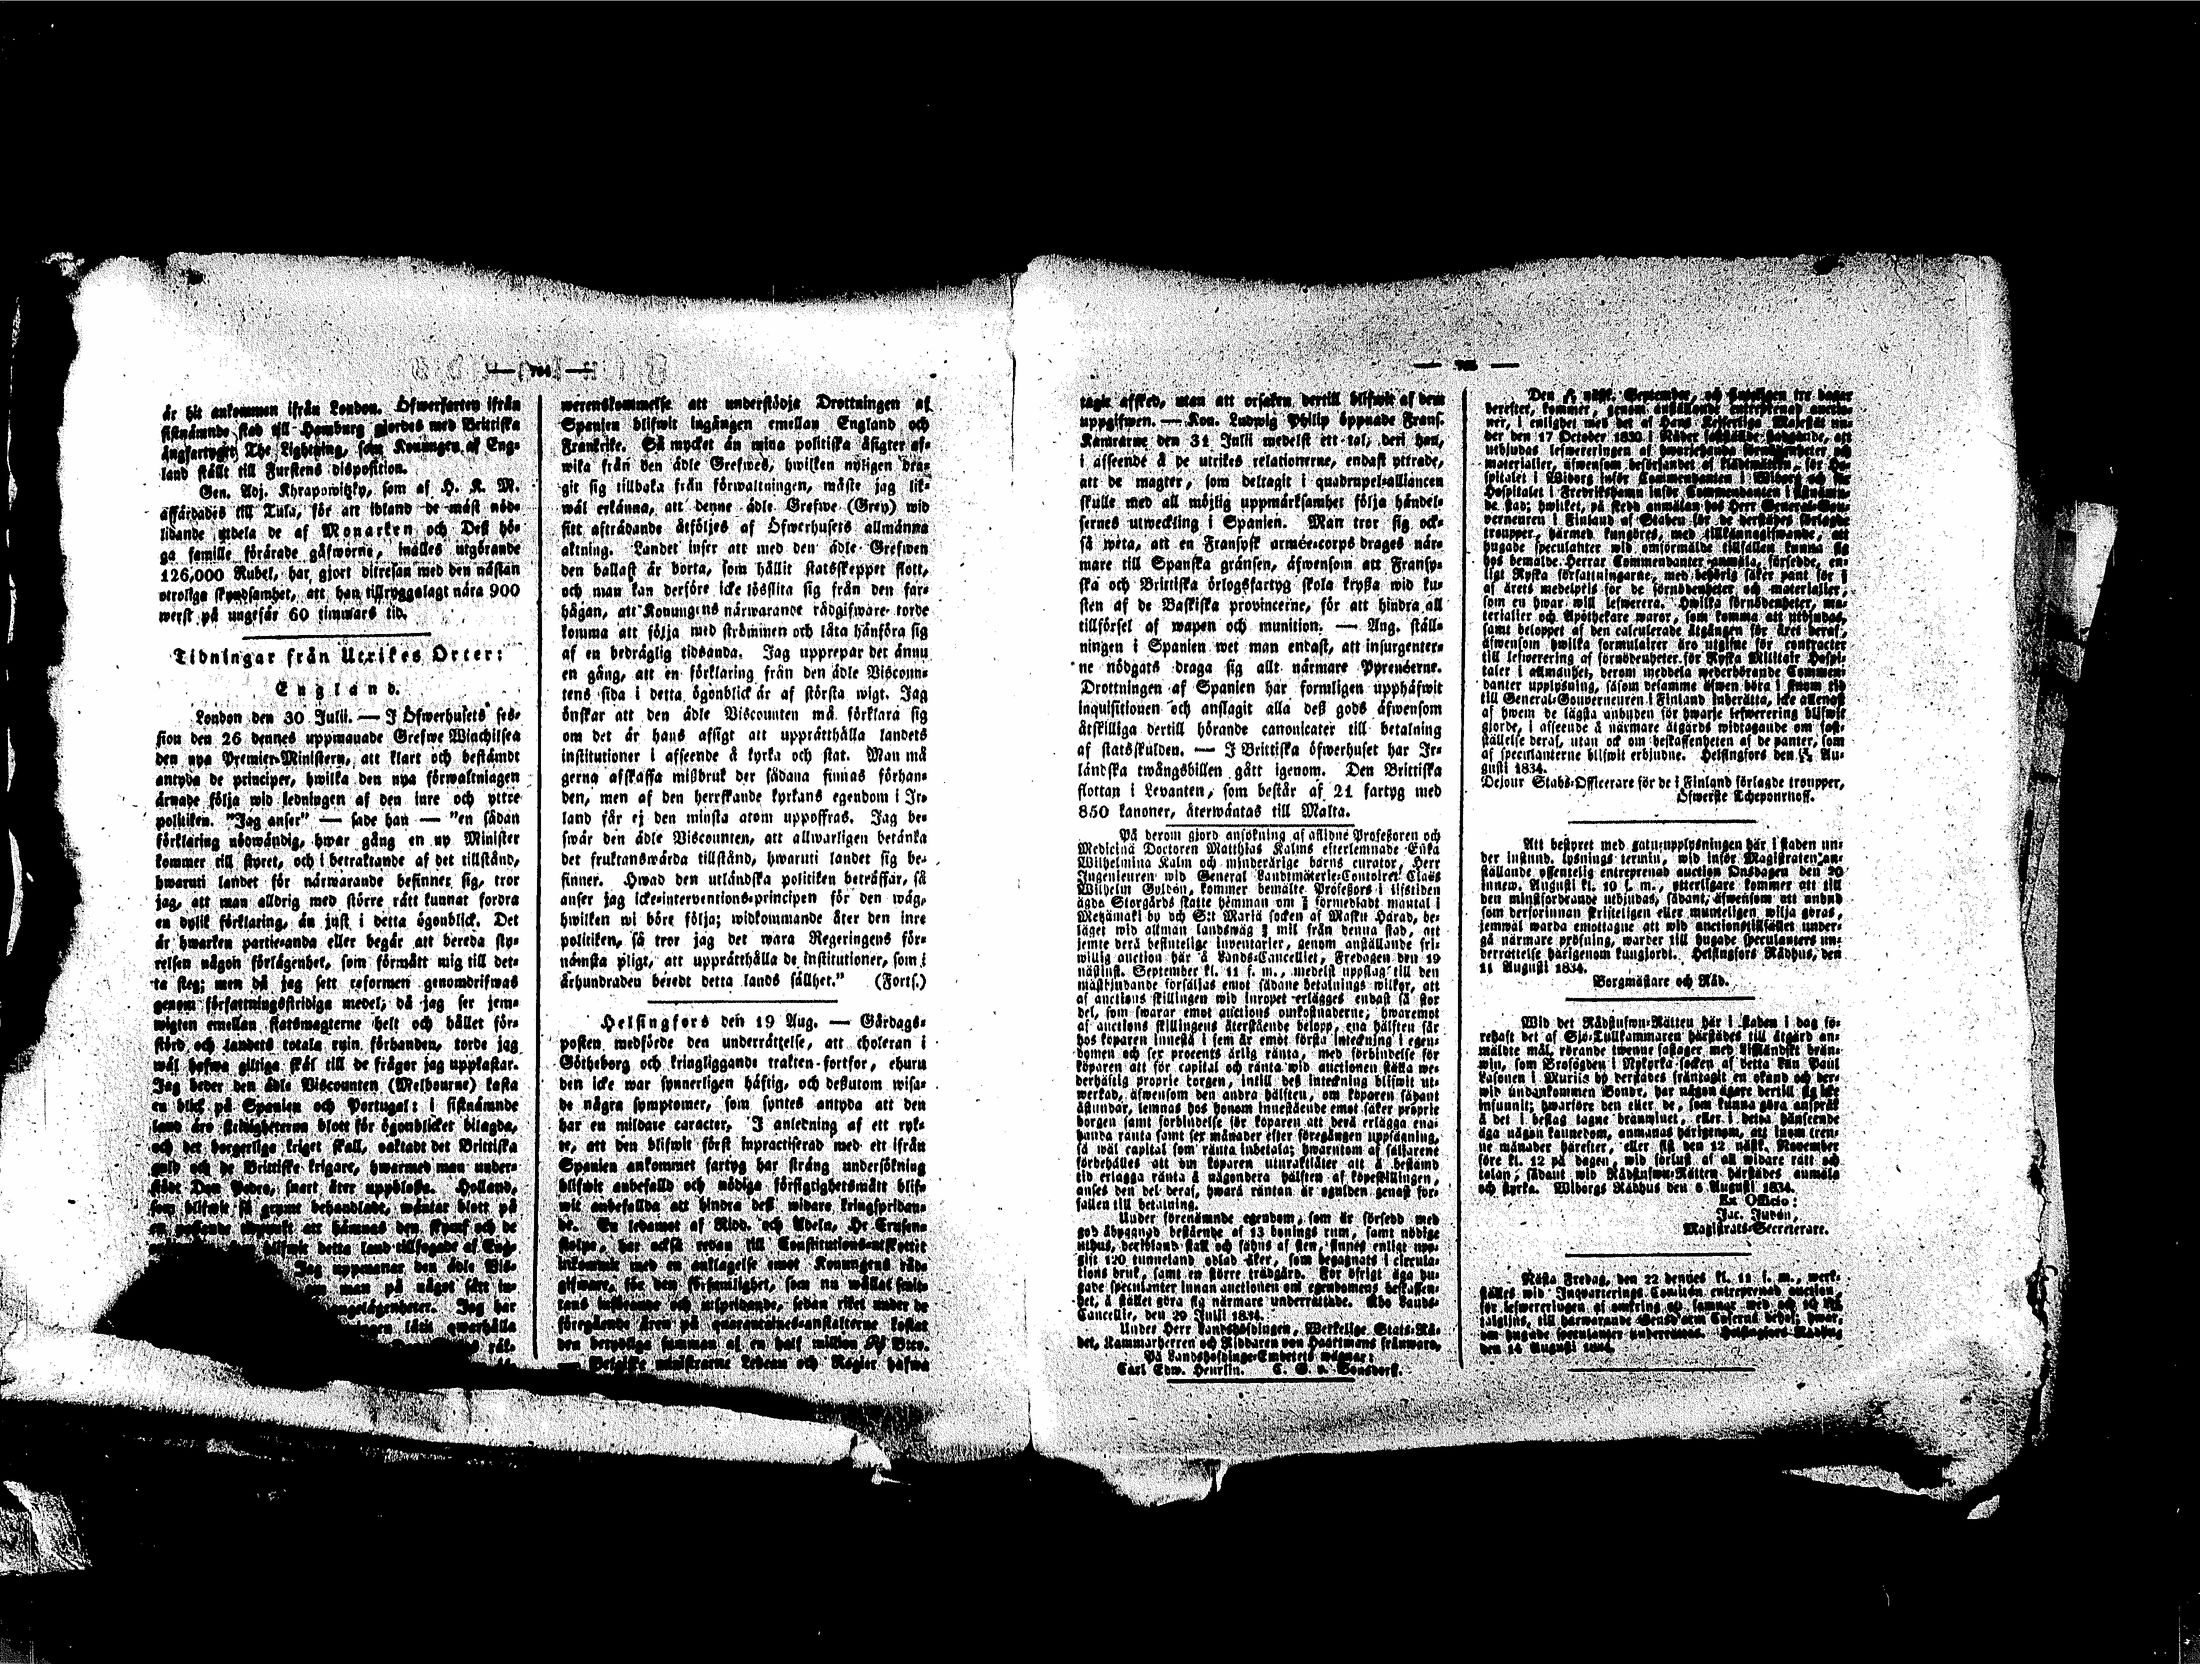 — 764 —
är hit ankommen ifrån London. Öfwerfarten ifrån
sistnämnde stad till Hamburg gjordes med Brittiska
ångfartyget The Lightning, som Konungen af Eng-
land ställt till Furstens disposition.
Gen. Adj. Khrapowitzky, som af H. K. M.
affärdades till Tula, för att ibland de mäst nöd-
lidande utdela de af Monarken och Deß hö-
ga famille förärade gåfworne, inalles utgörande
126,000 Rubel, har gjort ditresan med den nästan
otroliga skyndsamhet, att han tillryggalagt nära 900
werst på ungefär 60 timmars tid.
Tidningar från Utrikes Orter:
England.
London den 30 Julii. — I Öfwerhusets ses-
sion den 26 dennes uppmanade Grefwe Winchilsea
den nya Premier-Ministern, att klart och bestämdt
antyda de principer, hwilka den nya förwaltningen
ärnade följa wid ledningen af den inre och yttre
politiken. "Jag anser" — sade han — "en sådan
förklaring nödwändig, hwar gång en ny Minister
kommer till styret, och i betraktande af det tillstånd,
hwaruti landet för närwarande befinner sig, tror
jag, att man alldrig med större rätt kunnat fordra
en dylik förklaring, än just i detta ögonblick. Det
är hwarken partie-anda eller begär att bereda sty-
relsen någon förlägenhet, som förmått mig till det-
ta steg; men då jag sett reformen genomdrifwas
genom författningsstridiga medel; då jag ser jem-
wigten emellan statsmagterne helt och hållet för-
störd och landets totala ruin förhanden, torde jag
wäl hafwa giltiga skäl till de frågor jag uppkastar.
Jag beder den ädle Viscounten (Melbourne) kasta
en blick på Spanien och Portugal: i sistnämnde
land äro stridigheterna blott för ögonblicket bilagda,
och det borgerliga kriget skall, oaktadt det Brittiska
guld och de Brittiske krigare, hwarmed man under-
stödt Don Pedro, snart åter uppblossa. Holland,
som blifwit så grymt behandladt, wäntar blott på
att hämnas den och de
blifwit detta land tillfogade af Eng-
Jag uppmanar den ädle Vis-
man på något sätt in-
angelägenheter. Jag har
låta öfwerhålla
werenskommelse att understödja Drottningen af
Spanien blifwit ingången emellan England och
Frankrike. Så mycket än mina politiska åsigter af-
wika från den ädle Grefwes, hwilken nyligen dra-
git sig tillbaka från förwaltningen, måste jag lik-
wäl erkänna, att denne ädle Grefwe (Grey) wid
sitt afträdande åtföljes af Öfwerhusets allmänna
aktning. Landet inser att med den ädle Grefwen
den ballast är borta, som hållit statsskeppet flott,
och man kan derföre icke lösslita sig från den far-
hågan, att Konungens närwarande rådgifware torde
komma att följa med strömmen och låta hänföra sig
af en bedräglig tidsanda. Jag upprepar det ännu
en gång, att en förklaring från den ädle Viscoun-
tens sida i detta ögonblick är af största wigt. Jag
önskar att den ädle Viscounten må förklara sig
om det är hans afsigt att upprätthålla landets
institutioner i afseende å kyrka och stat. Man må
gerna afskaffa mißbruk der sådana finnas förhan-
den, men af den herrskande kyrkans egendom i Ir-
land får ej den minsta atom uppoffras. Jag be-
swär den ädle Viscounten, att allwarligen betänka
det fruktanswärda tillstånd, hwaruti landet sig be-
finner. Hwad den utländska politiken beträffar, så
anser jag icke-interventions-principen för den wäg,
hwilken wi böre följa; widkommande åter den inre
politiken, så tror jag det wara Regeringens för-
nämsta pligt, att upprätthålla de institutioner, som i
århundraden beredt detta lands sällhet." (Forts.)
Helsingfors den 19 Aug. — Gårdags-
posten medförde den underrättelse, att choleran i
Götheborg och kringliggande trakten fortfor, ehuru
den icke war synnerligen häftig, och deßutom wisa-
de några symptomer, som syntes antyda att den
har en mildare caracter. I anledning af ett ryk-
te, att den blifwit först impractiserad med ett ifrån
Spanien ankommet fartyg har sträng undersökning
blifwit anbefalld och nödiga försigtighetsmått blif-
wit anbefallda att hindra deß widare kringspridan-
de. En ledamot af Ridd. och Adeln, Hr Crusen-
stolpe, har också redan till Constitutionsutskottet
inkommit med en anklagelse emot Konungens råd-
gifware, för den försumlighet, som nu wållat smit-
tans införande och utspridande, sedan riket under de
föregående åren på quarantaines-anstalterne kostat
den betydliga summan af en half million Rdr Bco.
— Belgiske ministrarne Lebeau och Rogier hafwa
— 765 —
tagit afsked, utan att orsaken dertill blifwit af dem
uppgifwen. — Kon. Ludwig Philip öppnade Frans.
Kamrarne den 31 Julii medelst ett tal, deri han,
i afseende å de utrikes relationerne, endast yttrade,
att de magter, som deltagit i quadrupel-alliancen
skulle med all möjlig uppmärksamhet följa händel-
sernes utweckling i Spanien. Man tror sig ock-
så weta, att en Fransysk armée-corps drages när-
mare till Spanska gränsen, äfwensom att Fransy-
ska och Brittiska örlogsfartyg skola kryßa wid ku-
sten af de Baskiska provincerne, för att hindra all
tillförsel af wapen och munition. — Ang. ställ-
ningen i Spanien wet man endast, att insurgenter-
ne nödgats draga sig allt närmare Pyrenéerne.
Drottningen af Spanien har formligen upphäfwit
inquisitionen och anslagit alla deß gods äfwensom
åtskilliga dertill hörande canonicater till betalning
af statsskulden. — I Brittiska öfwerhuset har Ir-
ländska twångsbillen gått igenom. Den Brittiska
flottan i Levanten, som består af 21 fartyg med
850 kanoner, återwäntas till Malta.
På derom gjord ansökning af aflidne Profeßoren och
Medicinä Doctoren Matthias Kalms efterlemnade Enka
Wilhelmina Kalm och minderårige barns curator, Herr
Ingenieuren wid General Landtmäterie-Contoiret Claës
Wilhelm Gyldén, kommer bemälte Profeßors i lifstiden
ägda Storgårds skatte hemman om förmedladt mantal i
Metzämäki by och S:t Mariä socken af Masku Härad, be-
läget wid allmän landswäg mil från denna stad, att
jemte derå befintelige inventarier, genom anställande fri-
willig auction här å Lands-Cancelliet, Fredagen den 19
nästinst. September kl. 11 f. m., medelst uppslag till den
mästbjudande försäljas emot sådane betalnings wilkor, att
af auctions skillingen wid inropet erlägges endast så stor
del, som swarar emot auctions omkostnaderne; hwaremot
af auctions skillingens återstående belopp, ena hälften får
hos köparen innestå i fem år emot första inteckning i egen-
domen och sex procents årlig ränta, med förbindelse för
köparen att för capital och ränta wid auctionen ställa we-
derhäftig proprie borgen, intill deß inteckning blifwit ut-
werkad, äfwensom den andra hälften, om köparen sådant
åstundar, lemnas hos honom innestående emot säker proprie
borgen samt förbindelse för köparen att derå erlägga ena-
handa ränta samt sex månader efter föregången uppsägning,
så wäl capital som ränta inbetala; hwarutom af säljarene
förbehålles att om köparen uturaktlåter att å bestämd
tid erlägga ränta å någondera hälften af köpeskillingen,
anses den del deraf, hwarå räntan är ogulden genast för-
fallen till betalning.
Under förenämnde egendom, som är försedd med
god åbyggnad bestående af 13 bonings rum, samt nödige
uthus, deribland stall och fähus af sten, finnes enligt upp-
gift 120 tunneland odlad åker, som begagnats i circula-
tions bruk, samt en större trädgård. För öfrigt äga hu-
gade speculanter innan auctionen om egendomens beskaffen-
het, å stället göra sig närmare underrättade. Åbo Lands-
Cancellie, den 29 Julii 1834.
Under Herr Landshöfdingen, Werkelige Stats-Rå-
det, Kammarherren och Riddaren von Haartmans frånwaro,
På Landshöfdinge-Embetets wägnar:
Carl Edw. Heurlin. C. G. v. Bonsdorff.
Den nästk. September, och sedan tre dagar
derefter, kommer, genom anställande entreprenad auctio-
ner, i enlighet med det af Hans Kejserliga Majestät un-
der den 17 October 1830 i Nåder fastställde, att
utbjudas lefwereringen af hwarjehanda förnödenheter och
materialier, äfwensom besörjandet af klädtwätten, för Ho-
spitalet i Wiborg inför Commendanten i Wiborg och för
Hospitalet i Fredrikshamn inför Commendanten i sistnämn-
de stad; hwilket, på skedd anmälan hos Herr General-Gou-
verneuren i Finland af Staben för de derstädes förlagde
troupper, härmed kungöres, med tillkännagifwande, att
hugade speculanter wid omförmälde tillfällen kunna sig
hos bemälde Herrar Commendanter anmäla, försedde, en-
ligt Ryska författningarne, med behörig säker pant för
af årets medelpris för de förnödenheter och materialier,
som en hwar will lefwerera. Hwilka förnödenheter, ma-
terialier och Apothekare waror, som komma att utbjudas,
samt beloppet af den calculerade åtgången för året deraf,
äfwensom hwilka formulairer äro utgifne för contracter
till lefwerering af förnödenheter för Ryska Militair Hospi-
taler i allmänhet, derom meddela wederbörande Commen-
danter upplysning, såsom desamme äfwen böra i sinom tid
till General-Gouverneuren i Finland inberätta, icke allenast
af hwem de lägsta anbuden för hwarje lefwerering blifwit
gjorde, i afseende å närmare åtgärds widtagande om fast-
ställelse deraf, utan ock om beskaffenheten af de panter, som
af speculanterne blifwit erbjudne. Helsingfors den Au-
gusti 1834.
Dejour Stabs-Officerare för de i Finland förlagde troupper,
Öfwerste Tcheponrnoff.
Att bestyret med gatu-upplysningen här i staden un-
der instund. lysnings termin, wid inför Magistraten an-
ställande offentelig entreprenad auction Onsdagen den 20
innew. Augusti kl. 10 f. m., ytterligare kommer att till
den minstfordrande utbjudas, sådant, äfwensom att anbud
som derförinnan skrifteligen eller munteligen wilja göras,
jemwäl warda emottagne att wid auctionstillfället under-
gå närmare pröfning, warder till hugade speculanters un-
derrättelse härigenom kungjordt. Helsingfors Rådhus, den
11 Augusti 1834.
Borgmästare och Råd.
Wid det Rådstufwu-Rätten här i staden i dag fö-
redraget det af Sjö-Tullkammaren härstädes till åtgärd an-
mäldte mål, rörande twenne fastager med utländskt brän-
win, som Brofogden i Nykyrka socken af detta Län Paul
Lasonen i Muriis by derstädes fråntagit en okänd och der-
wid undankommen Bonde, har någon ägare dertill sig icke
infunnit; hwarföre den eller de, som kunna göra anspråk
å det i beslag tagne bränwinet, eller i detta hänseende
äga någon kännedom, anmanas härigenom, att inom tren-
ne månader härefter, eller sist den 12 nästk. November
före kl. 12 på dagen, wid förlust af all widare rätt och
talan, sådant wid Rådstufwu-Rätten härstädes anmäla
och styrka. Wiborgs Rådhus den 6 Augusti 1834.
Ex Officio:
Jac. Judén,
Magistrats-Secreterare.
Nästa Fredag, den 22 dennes kl. 11 f. m., werk-
ställes wid Inqvarterings Comitén entreprenad auction,
för lefwereringen af omkring 60 famnar wed och
talgljus, till härwarande Gensd'arm Caserns behof; hwar-
om hugade speculanter underrättas. Helsingfors Rådhus
den 14 Augusti 1834.